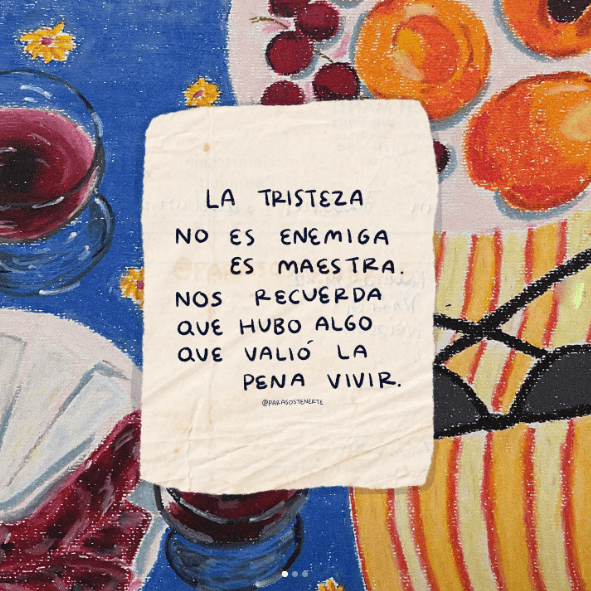 LA TRISTEZA
NO ES ENEMIGA
ES MAESTRA.
NOS RECUERDA
QUE HUBO ALGO
QUE VALIÓ LA
PENA VIVIR.
@PARASOSTENERTE